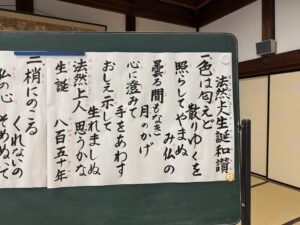 法然大生誕和讃
一色は匂えど
散りゆくを
照らしてやまぬ
み仏の
曇る間もなき
月のかげ
心に澄みて
手をあわす
おしえ示して
生れましぬ
法然上人
思うかな
生誕
八百五十年
二梢にのこる
くれないの
私の心
そめぬいて